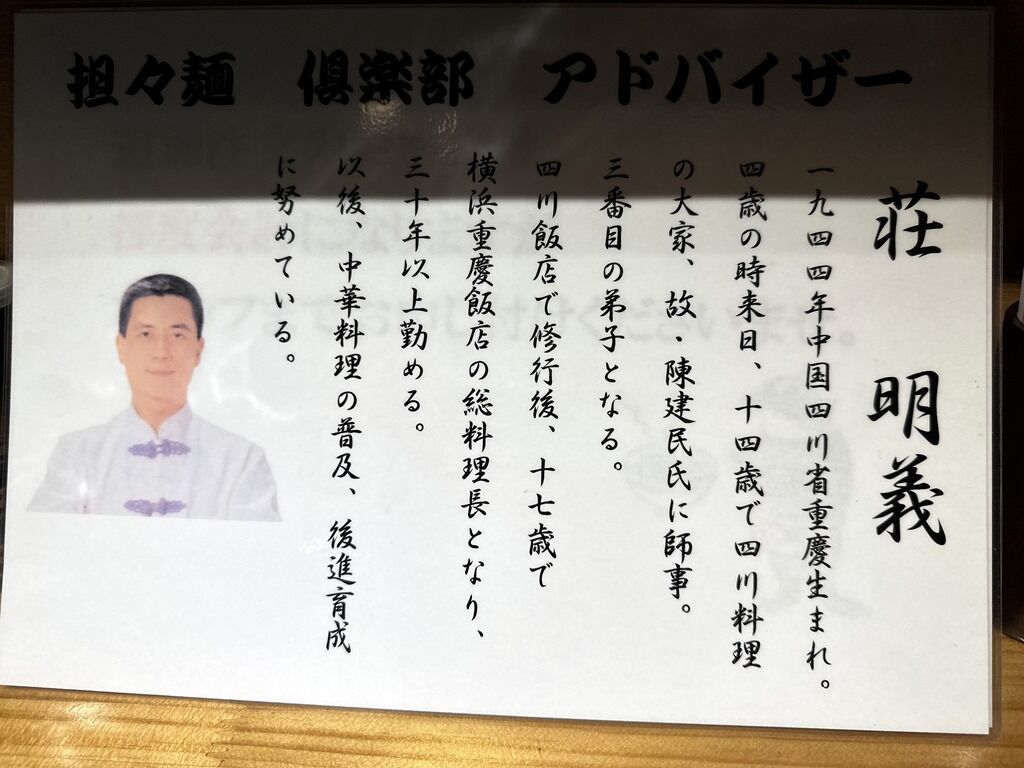 担々麺 倶楽部 アドバイザー
荘 明義
一九四四年中国四川省重慶生まれ。
四歳の時来日、十四歳で四川料理
の大家、故・陳建民氏に師事。
三番目の弟子となる。
四川飯店で修行後、十七歳で
横浜重慶飯店の総料理長となり、
三十年以上勤める。
以後、中華料理の普及、後進育成
に努めている。